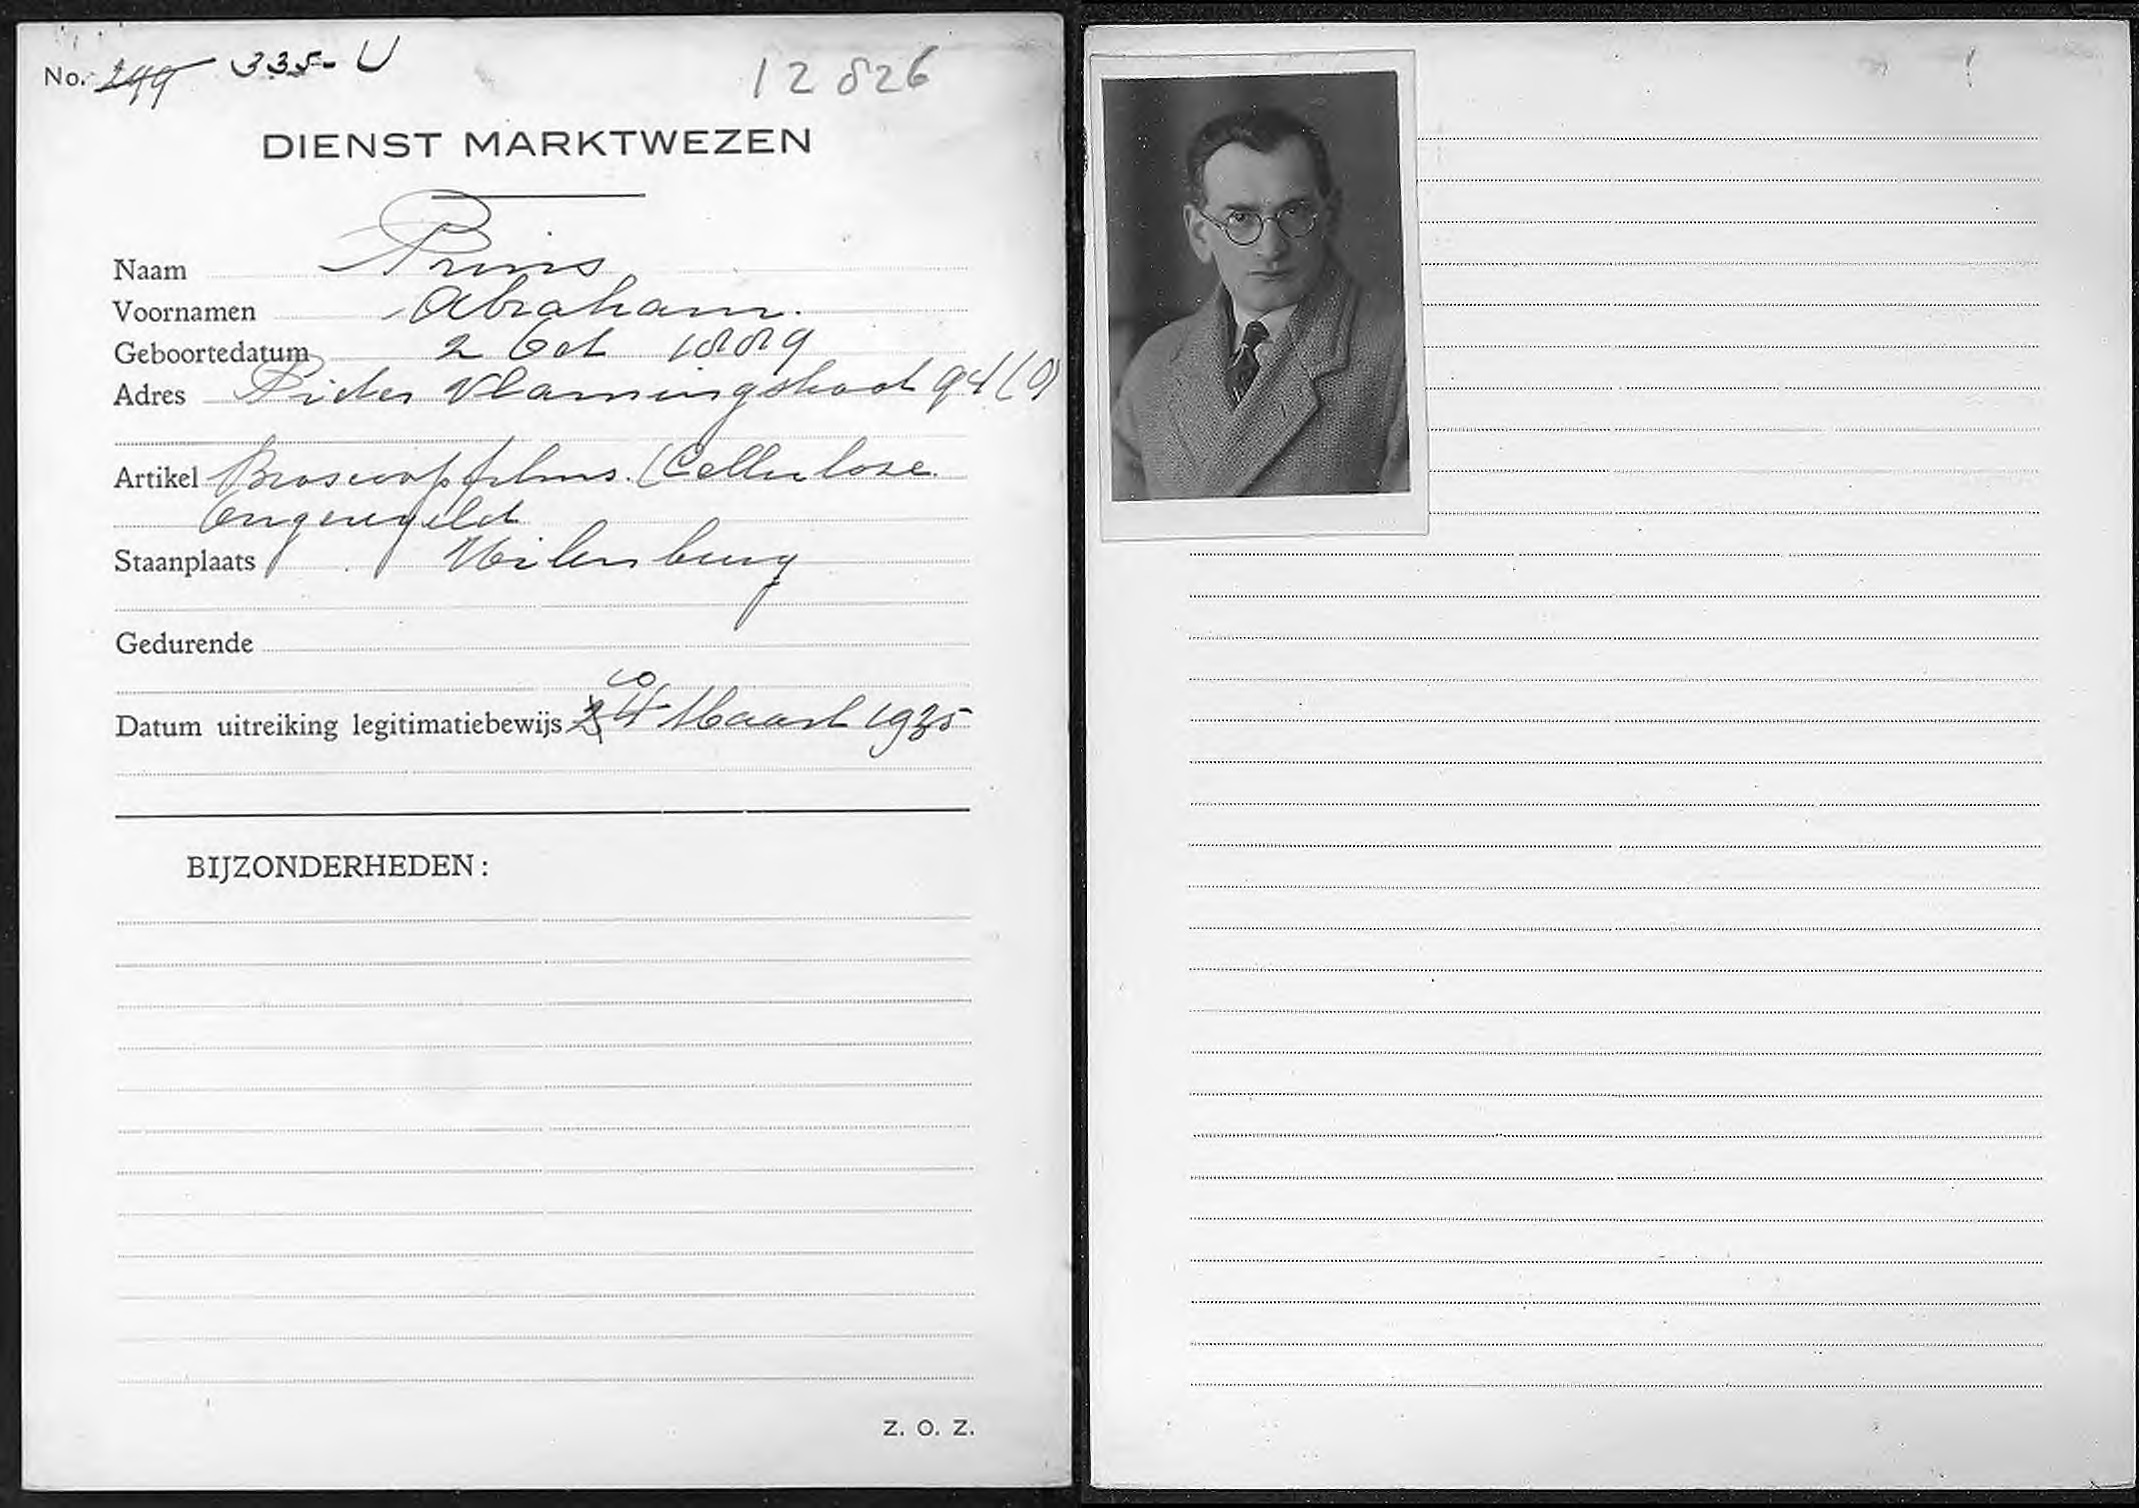 No. 299 335-U
12826
DIENST MARKTWEZEN
Naam Prins
Voornamen Abraham.
Geboortedatum 2 Oct 1889
Adres Pieter Vlamingstraat 94 (O)
Artikel Bioscoopfilms. (Cellulose
Ongeregeld
Staanplaats Uilenburg
Gedurende
10
Datum uitreiking legitimatiebewijs 24 Maart 1935
BIJZONDERHEDEN:
Z. O. Z.